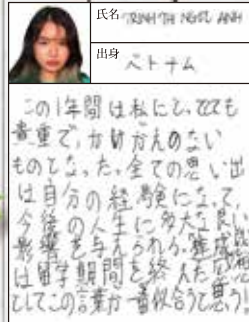 氏名 TRINH THI NGOC ANH
出身 ベトナム
この1年間は私にとってとても
貴重で、かけがえのない
ものとなった。全ての思い出
は自分の経験になって、
今後の人生に多大な良い
影響を与えられる。達成感
は留学期間を終えた感想
としてこの言葉が一番似合うと思う。